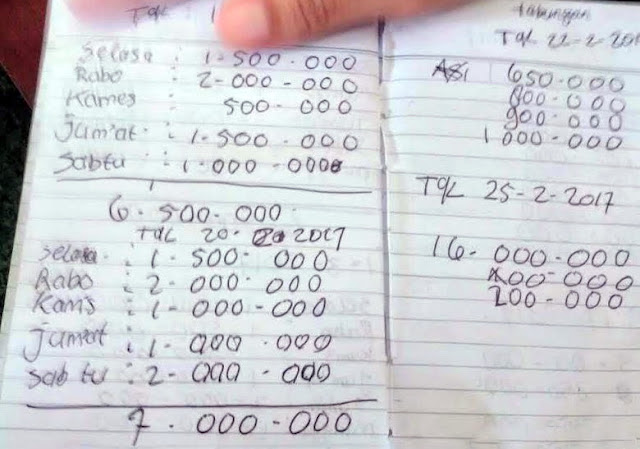 Tgl : 1
Selasa : 1-500-000
Rabo : 2-000-000
Kames 500-000
Jum'at : 1-500-000
Sabtu : 1-000-000
6.500.000
Tgl 20. 2017
Selasa : 1-500-000
Rabo : 2-000-000
Kams : 1-000-000
Jumat : 1-000-000
Sabtu : 2-000-000
7.000-000
Tabungan
Tgl 22-2-201
650-000
800-000
900-000
1000-000
Tgl 25-2-2017
16-000-000
400-000
200-000